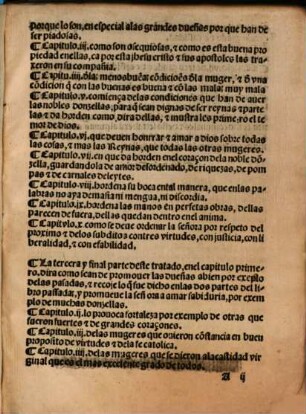 porque lo son, en especial a las grandes dueñas por que han de
ser piadosas.
¶ Capitulo.iij. como son obsequiosas, τ como es esta buena pro
piedad en ellas, ca por esta jhesu cristo τ sus apostoles las tra
xeron en su compañia.
¶ Capitu.iiij. dla menos buena condiciõ es dla muger, τ q̃ vna
condicion q̃ con las buenas es buena τ cõ las mala: muy mala
¶ Capitulo.v. comiença de las condiciones que han de auer
las nobles donzellas, para q̃ sean dignas de ser reynas
las, τ da horden como, τ muestra les primero el te
mor de dios.
¶ Capitulo.vj. que deuen honrrar τ amar a dios sobre todas
las cosas, τ mas las Reynas, que todas las otras mugeres.
¶ Capitulo.vij. en que da horden en el coraçon dela noble dõ
zella, guardandola de amor desordenado, de riquezas, de pom
pas τ de carnales deleytes.
¶ Capitulo.viij. hordena su boca en tal manera, que en las pa
labras no aya demasia ni mengua, ni discordia.
¶ Capitulo.ix. hordena las manos en perfetas obras, dellas
parecen de fuera, dellas que quedan dentro en el anima.
¶ Capitulo.x. como se deue ordenar la señora por respeto del
proximo τ delos subditos con tres virtudes, con justicia, con li
beralidad, τ con efabilidad.
¶ La tercera y final parte deste tratado, en el capitulo prime
ro, dira como se an de promouer las dueñas a bien por exẽplo
delas pasadas, τ recoje lo que dicho en las dos partes del li
bro passadas, y promueue la señora a amar sabiduria, por exem
plo de muchas donzellas.
¶ Capitulo.ij. lo prouoca fortaleza por exemplo de otras que
fueron fuertes τ de grandes coraçones.
¶ Capitulo.iij. delas mugeres que ouieron cõstancia en buen
proposito de virtudes τ dela fe catolica.
¶ Capitulo.iiij. delas mugeres que se dieron ala castidad vir
ginal que es el mas excelente grado de todos.
A ij